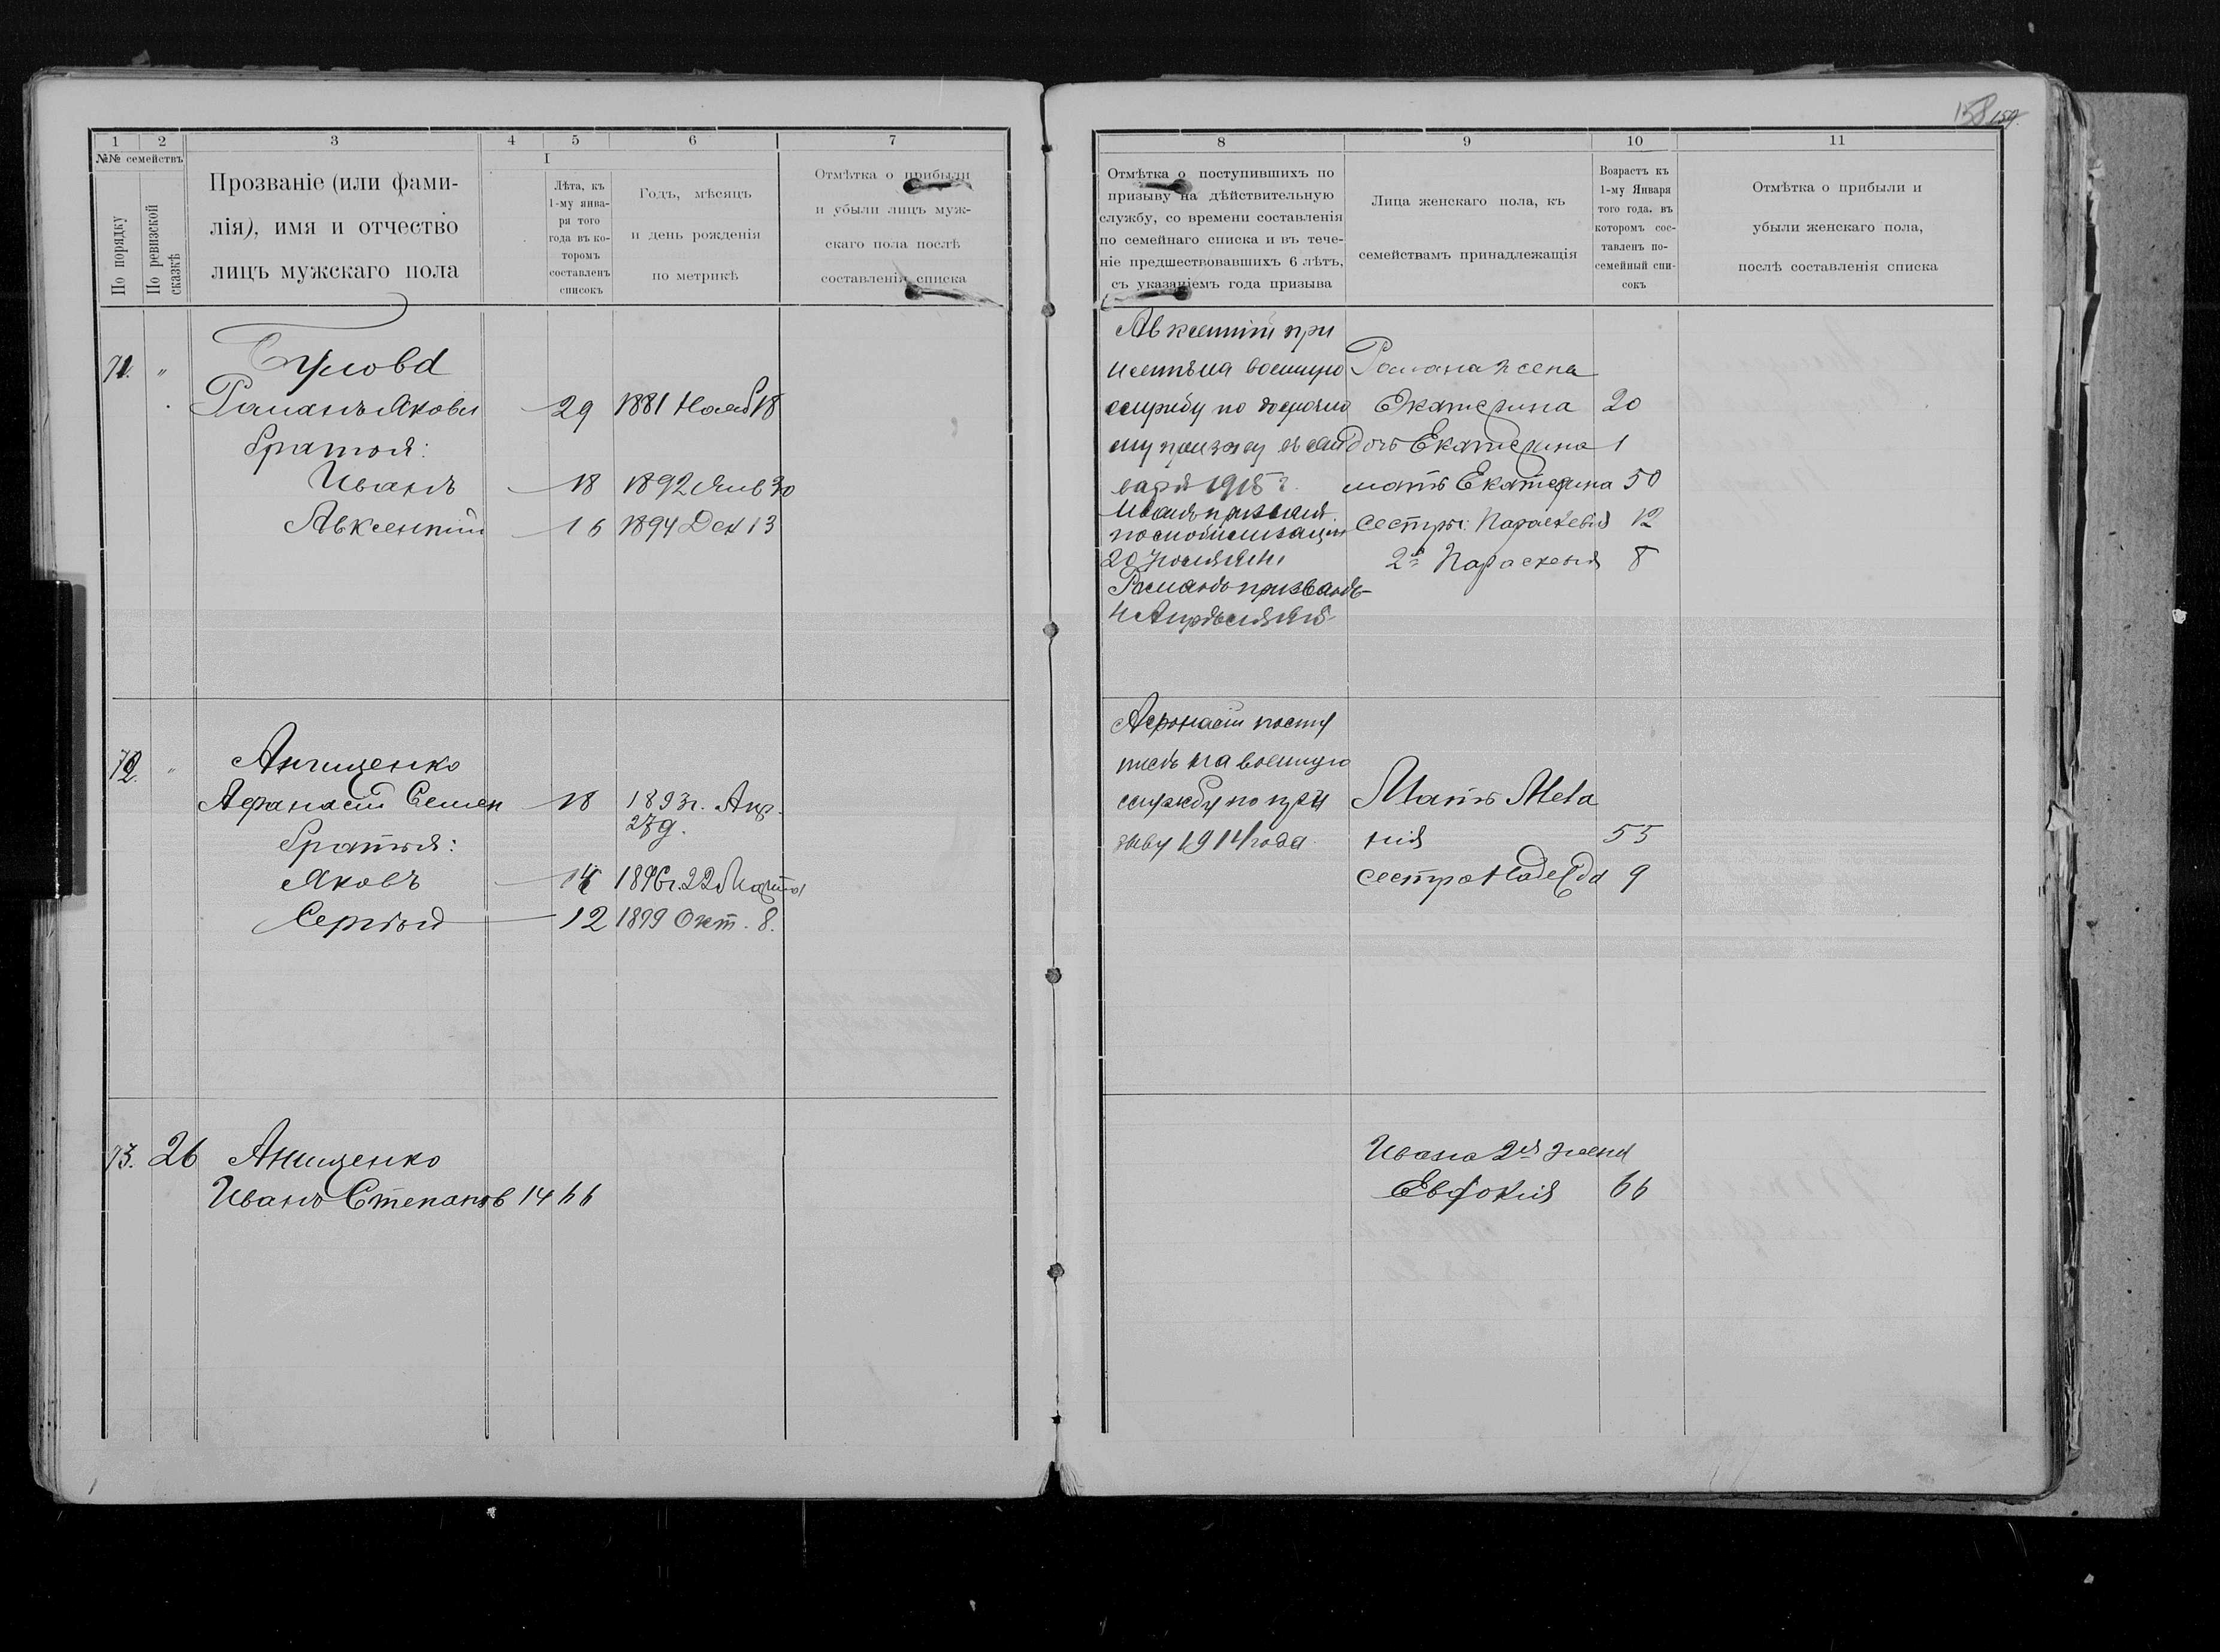 158 159.
1 2 3 4 5 6 7
№№ семействъ
По порядку
По ревизской сказкѣ
Прозваніе (или фами-
лія), имя и отчество
лицъ мужскаго пола
I
Лѣта, къ
1-му янва-
ря того
года въ ко-
торомъ
составленъ
списокъ
Годъ, мѣсяцъ
и день рожденія
по метрикѣ
Отмѣтка о прибыли
и убыли лицъ муж-
скаго пола послѣ
составленія списка
71. "
Романъ Яковл 29 1881 Нояб 18
братья:
Иванъ 18 1892 Янв 30
Авксентий 16 1894 Дек 13
72. "
Анищенко
Афанасій Семен 18 1893 г. Апр.
27 д.
братья:
Яковъ 1896 г. 22 Марта
Сергѣй 12 1899 Окт. 8.
73. 26 Анищенко
Иванъ Степановъ 14 66
8 9 10 11
Отмѣтка о поступившихъ по
призыву на дѣйствительную
службу, со времени составленія
по семейнаго списка и въ тече-
ніе предшествовавшихъ 6 лѣтъ,
съ указаніемъ года призыва
Лица женскаго пола, къ
семействамъ принадлежащія
Возрастъ къ
1-му Января
того года, въ
которомъ сос-
тавленъ по-
семейный спи-
сокъ
Отмѣтка о прибыли и
убыли женскаго пола,
послѣ составленія списка
Авксентій при
нятъ на военную
службу по досрочно
му призыву въ ян
варѣ 1915 г.
Иванъ призванъ
по мобилизаціи
Романъ призванъ
Романа жена
Екатерина 20
дочь Екатерина 1
мать Екатерина 50
сестры: Параскевія 12
2я Параскевія 8
Афонасій посту
пилъ на военную
службу по при
зыву 1914 года
Мать Мела
нія 55
сестра Надежда 9
Ивана 2я жена
Евдокія 66